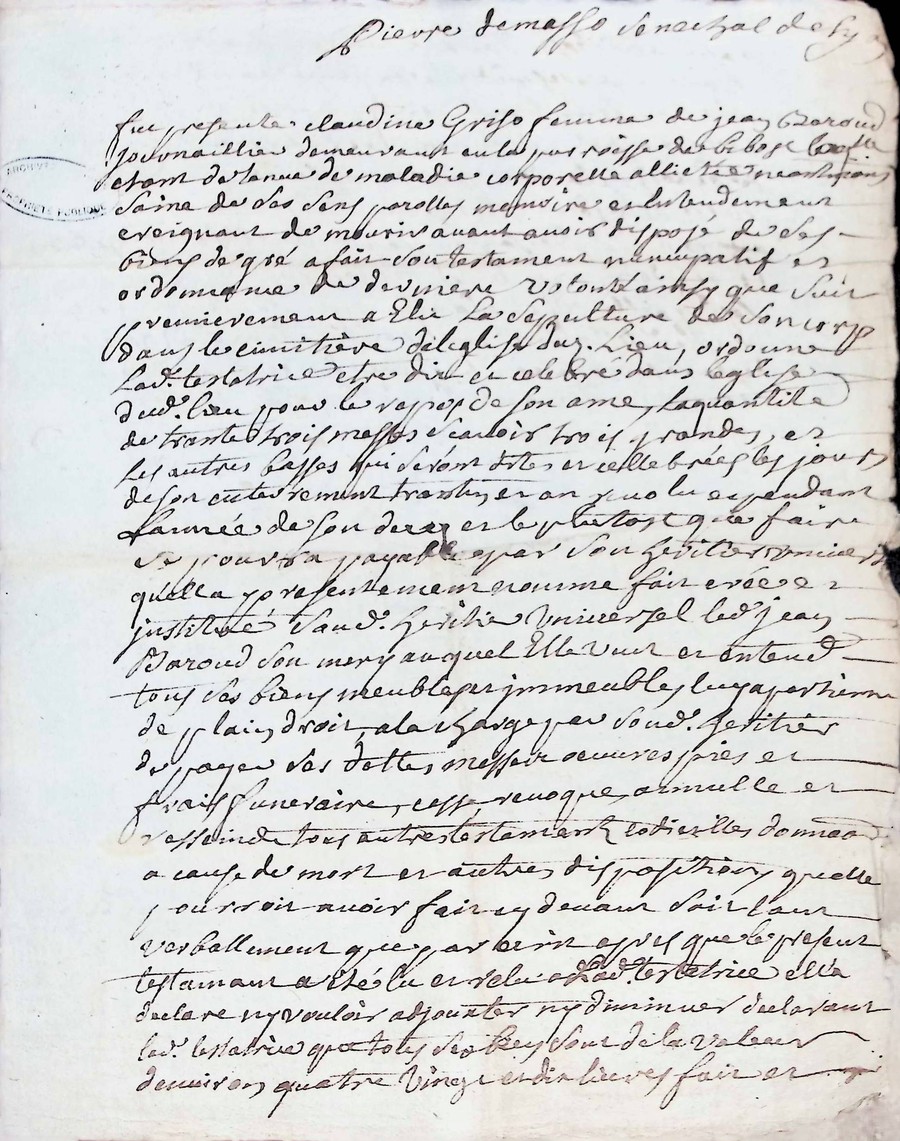 Pierre demasso Senechal de Ly
fut presente claudine Griso femme de jean Baroud
journaillier demeurant en la paroisse de bibost laqlle
etant detenue de maladie corporelle allictée neantmoins
saine de ses sens parolles memoire et entendement
creignant de mourir avant avoir disposé de ses
biens de gré a fait son testament nuncupatif et
ordonnance de derniere volonté ainsy que suit
premierement a Elu La Sepulture de son corp
dans le cimitière de leglise dud. Lieu, ordonne
Lad. testatrice etre dit et celebré dans leglise
dud. lieu pour le repos de son ame, Laquantité
de trante trois messes scavoir trois grandes, et
les autres basses qui seront dites et cellebrées les jours
de son enterrement trantin et an revolu et pendant
Lannée de son deces et le plutost que faire
se pourra payable par son heritier univers
quella presentement nomme fait crée et
justitué Saud. heritie Universel led. jean
Baroud son mary auquel Elle veut et entend
tous ses biens meubles et jmmeubles luy apartienne
de plain droit, ala charge par Sond. heritier
de payer ses dettes, messes oeuvres pies et
frais funeraire, casse, revoque, annulle et
resseinde tous autres testaments codicilles donnaõ
a cause de mort et autres dispositions quelle
pourroit avoir fait cy devant soit tant
verballement que par ecrit apres que le present
testamant a eté lu et relu a Lad. testatrice ella
declare ny vouloir adjouter ny diminuer declarant
lad. testatrice que tous ses biens sont de la valeur
denviron quatre vingt et dix livres fait et
ARCHIVES
PROPRIÉTÉ PUBLIQUE